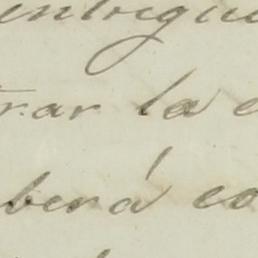 entregue
trar la e
berá co